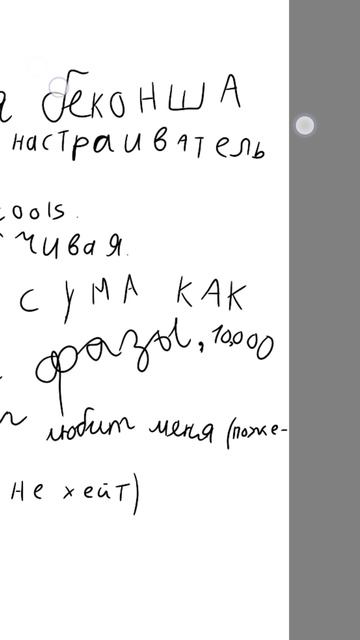 беконша
настраиватель
cools.
чивая.
сума как
фразы, 10,000
любит меня (поже-
не хейт)